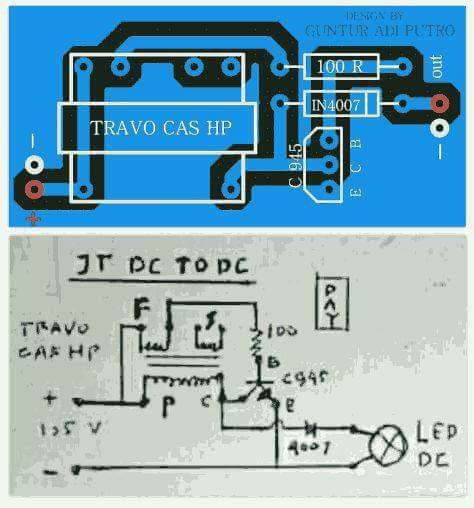 DESIGN BY
GUNTUR ADI PUTRO
100 R
out
IN4007
TRAVO CAS HP
C 945
B
C
E
-
+
-
JT DC TO DC
PAY
F
S
TRAVO
CAS HP
100
B
C945
+
P
C
E
1,5 V
4007
LED
DC
-